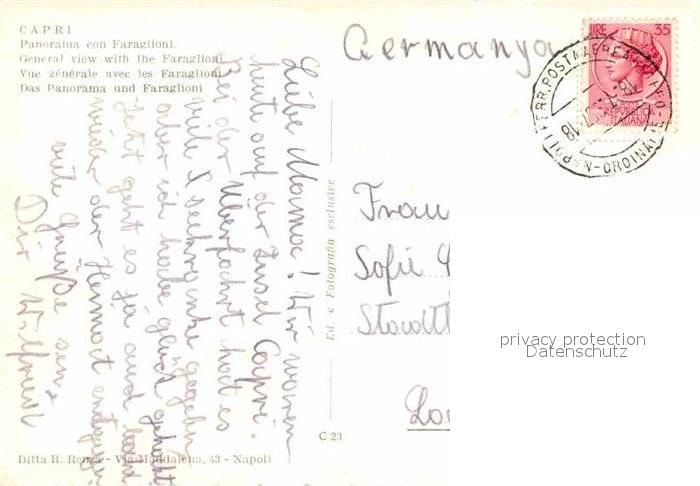 CAPRI
Panorama con Faraglioni.
General view with the Faraglioni
Vue générale avec les Faraglioni
Das Panorama und Faraglioni
Liebe Mama! Wir waren
heute auf der Insel Capri.
Bei der Überfahrt hat es
viele Seekranke gegeben
aber ich habe Glück gehabt
jetzt geht es ja auch bald
wieder der Heimat entgegen
viele Grüße sen.
Dir Wilfried
Ed. e Fotografia esclusive
C 20
Ditta R. Renza - Via Maddalena, 43 - Napoli
Germanya
LIRE 35
REPUBBLICA
ITALIANA
NAPOLI FERR. POSTA AEREA
ORDINARIE
Frau
Sofie
Stadt
privacy protection
Datenschutz